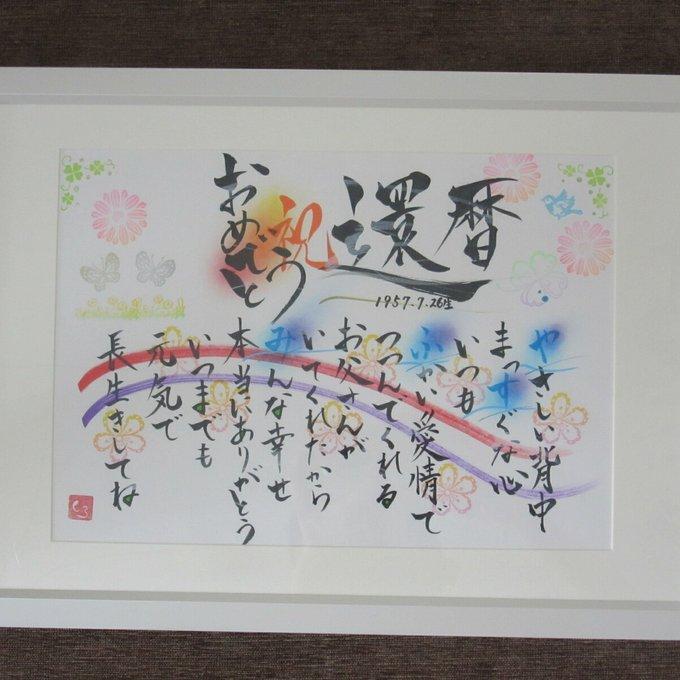 祝還暦
おめでとう
1957.7.26生
やさしい背中
まっすぐな心
いつも
ふかい愛情で
つつんでくれる
お父さんが
いてくれたから
みんな幸せ
本当にありがとう
いつまでも
元気で
長生きしてね